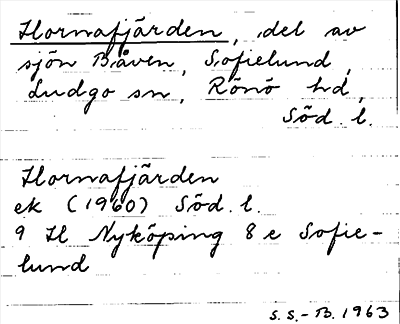 Hornafjärden, del av
sjön Båven, Sofielund,
Ludgo sn, Rönö hd,
Söd. l.
Hornafjärden
ek (1960) Söd. l.
9 H Nyköping 8 e Sofie-
lund
S. S. - B. 1963